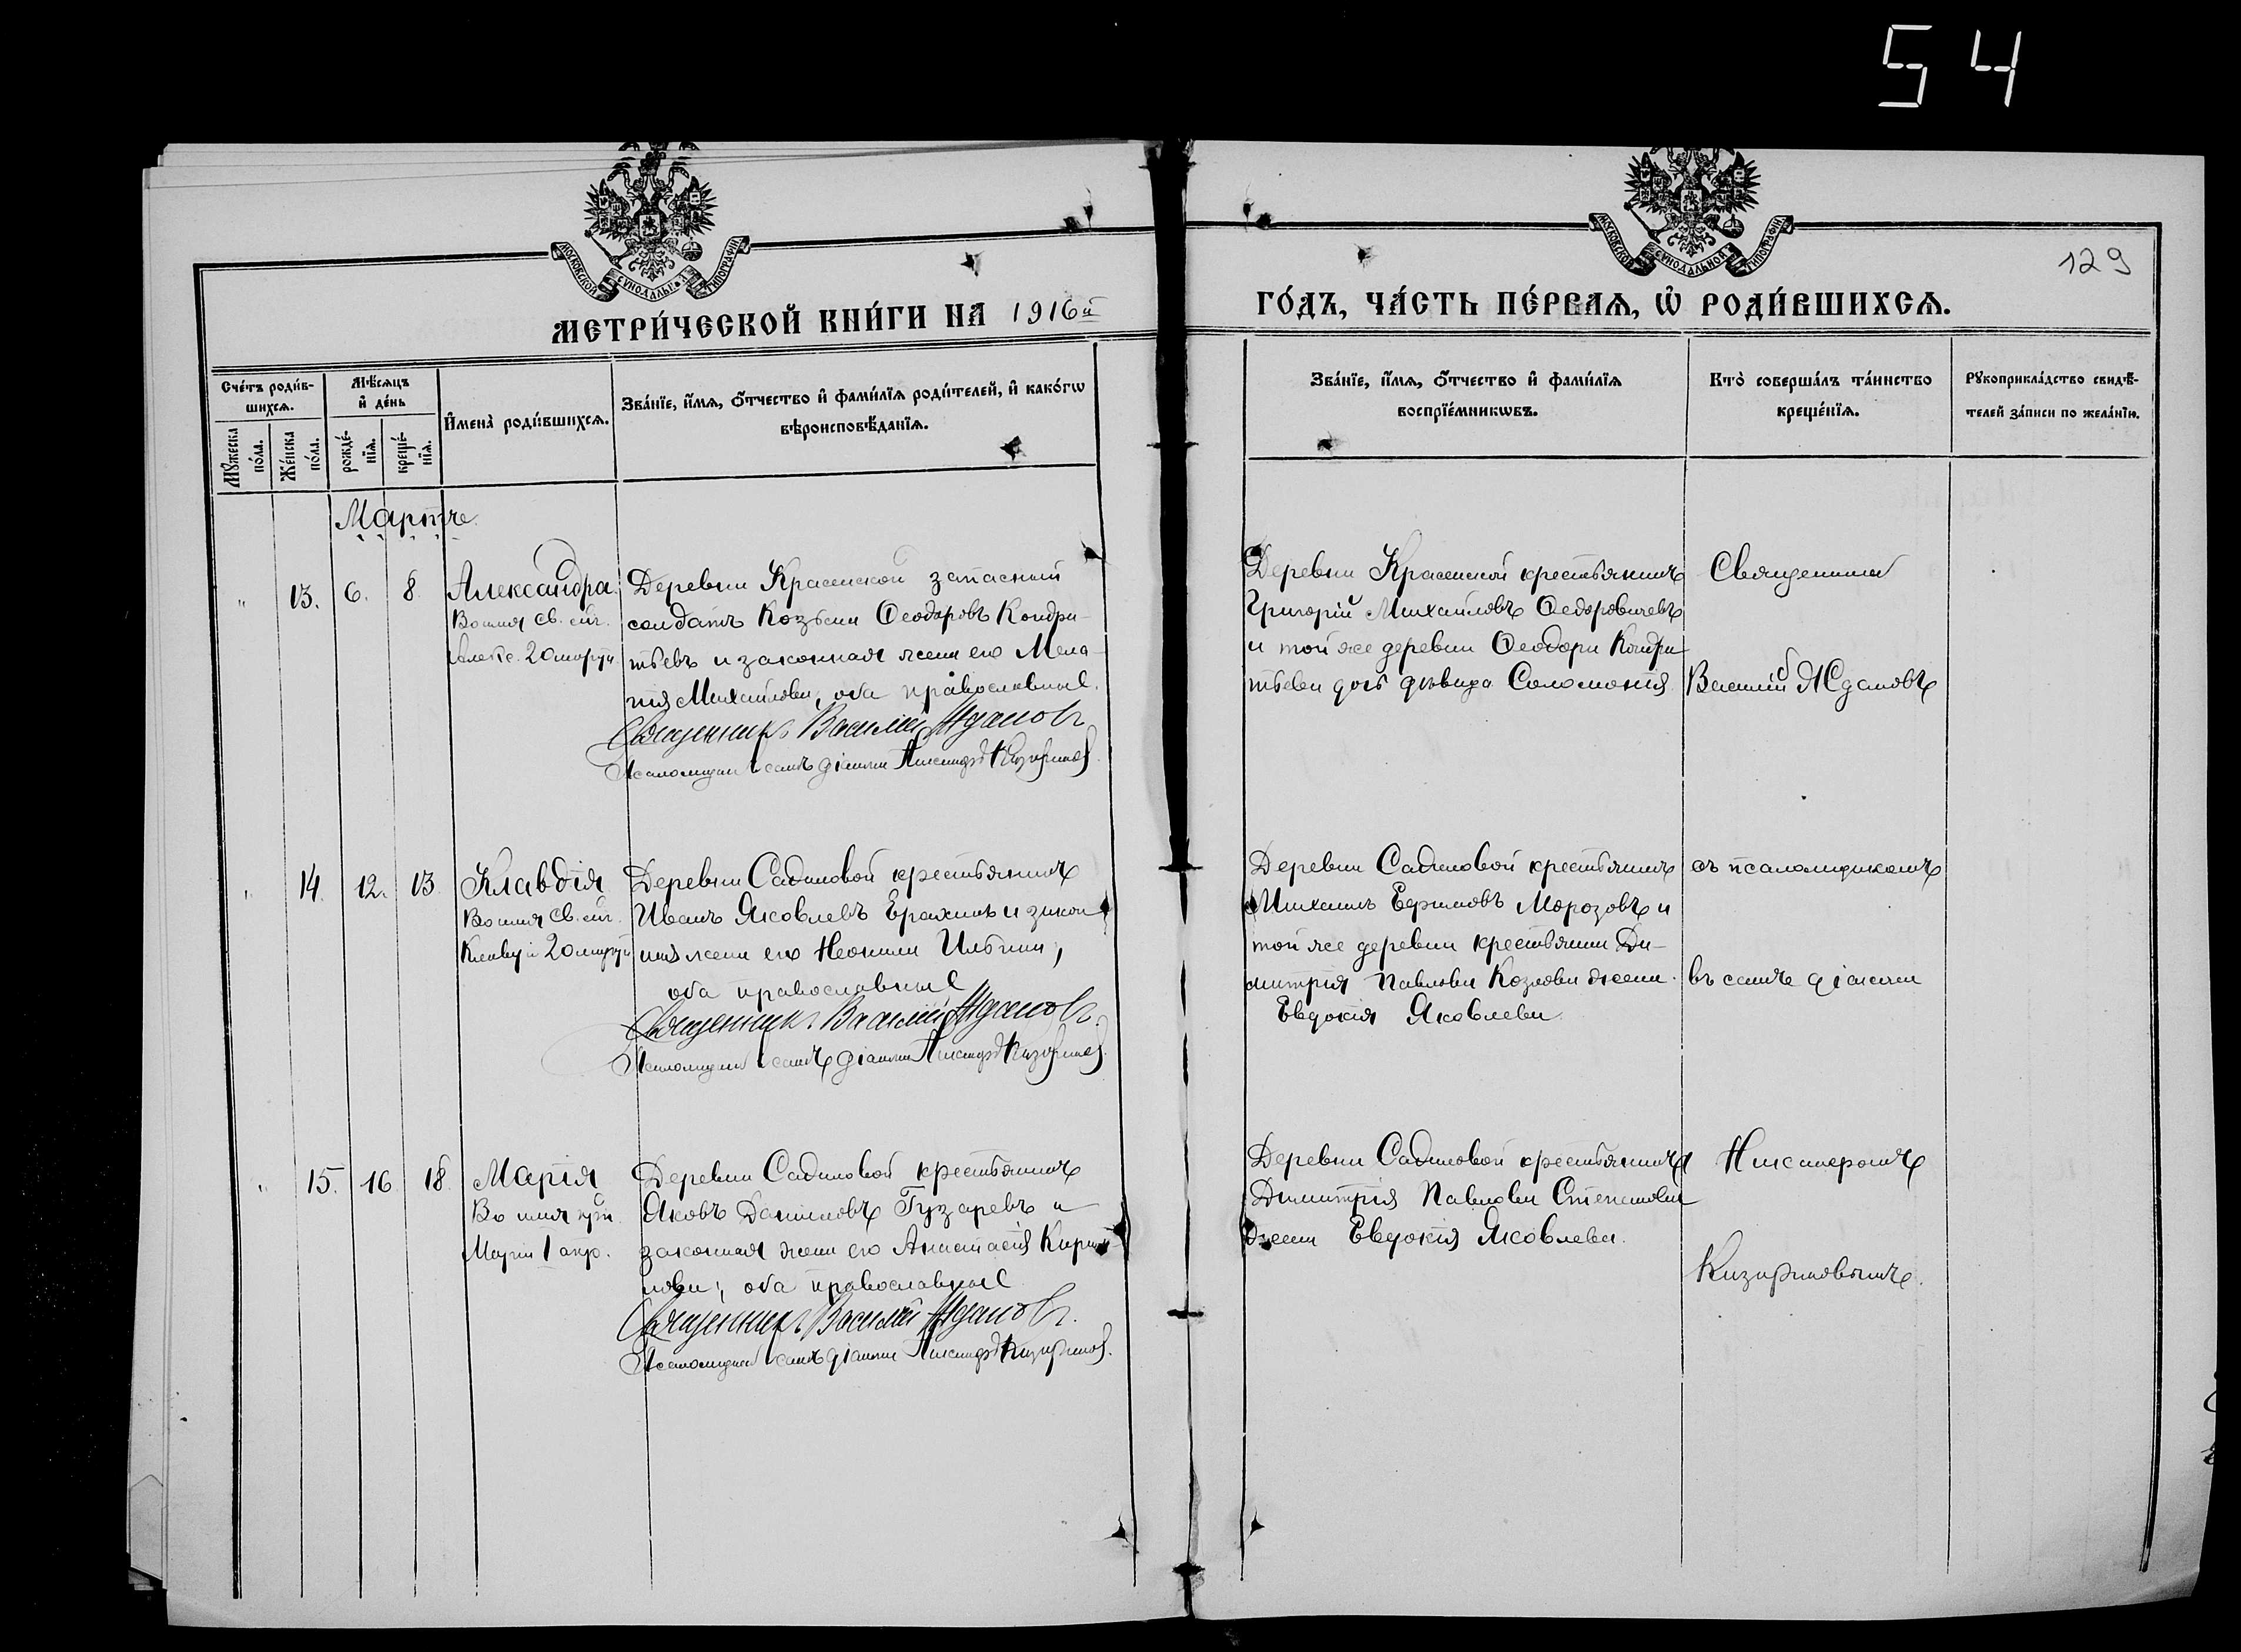 54
МОСКОВСКОЙ СѴНОДАЛЬНОЙ ТИПОГРАФІИ
МОСКОВСКОЙ СѴНОДАЛЬНОЙ ТИПОГРАФІИ
129
МЕТРИ́ЧЕСКОЙ КНИ́ГИ НА 1916й
ГО́ДЪ, ЧА́СТЬ ПЕ́РВАѦ, Ѡ҆ РОДИ́ВШИХСѦ.
Сче́тъ роди́в-
шихсѧ.
Мꙋ́жеска по́ла.
Же́нска по́ла.
Мѣ́сѧцъ
и҆ де́нь
рожде́-
нїѧ.
креще́-
нїѧ.
И҆мена̀ роди́вшихсѧ.
Зва́нїе, и҆́мѧ, ѻ҆́тчество и҆ фами́лїѧ роди́телей, и҆ како́гѡ
вѣроисповѣ́данїѧ.
Зва́нїе, и҆́мѧ, ѻ҆́тчество и҆ фами́лїѧ
воспрїе́мникѡвъ.
Кто̀ соверша́лъ та́инство
креще́нїѧ.
Рꙋкоприкла́дство свидѣ́-
телей за́писи по жела́нїю.
Мартъ
" 13. 6. 8. Александра
Во имя св. муч.
20 марта
Деревни Красенской запасный
солдатъ Козьма Ѳеодоровъ Кондра-
тьевъ и законная жена его Мела-
нія Михайлова, оба православные.
Священникъ Василій Ждановъ
Псаломщикъ въ санѣ діакона Никаноръ Кизериновъ
Деревни Красенской крестьянинъ
Григорій Михайловъ Ѳедоровичевъ
и той же деревни Ѳеодора Кондра-
тьева дочь дѣвица Соломонія
Священникъ
Василій Ждановъ
" 14. 12. 13. Клавдія
Во имя св. муч.
Клавдіи 20 марта
Деревни Садиловой крестьянинъ
Иванъ Яковлевъ Ерахинъ и закон-
ная жена его Неонила Ильина,
оба православные
Священникъ Василій Ждановъ.
Псаломщикъ въ санѣ діакона Никаноръ Кизериновъ
Деревни Садиловой крестьянинъ
Михаилъ Ефимовъ Морозовъ и
той же деревни крестьянина Ди-
митрія Павлова Козлова жена
Евдокія Яковлева
съ псаломщикомъ
въ санѣ діакона
" 15. 16. 18. Марія
Во имя
Маріи 1 апр.
Деревни Садиловой крестьянинъ
Яковъ Даниловъ Гузаревъ и
законная жена его Анастасія Кирил-
лова, оба православные
Священникъ Василій Ждановъ.
Псаломщикъ въ санѣ діакона Никаноръ Кизериновъ.
Деревни Садиловой крестьянина
Димитрія Павлова Степанова
жена Евдокія Яковлева.
Никаноромъ
Кизериновымъ.